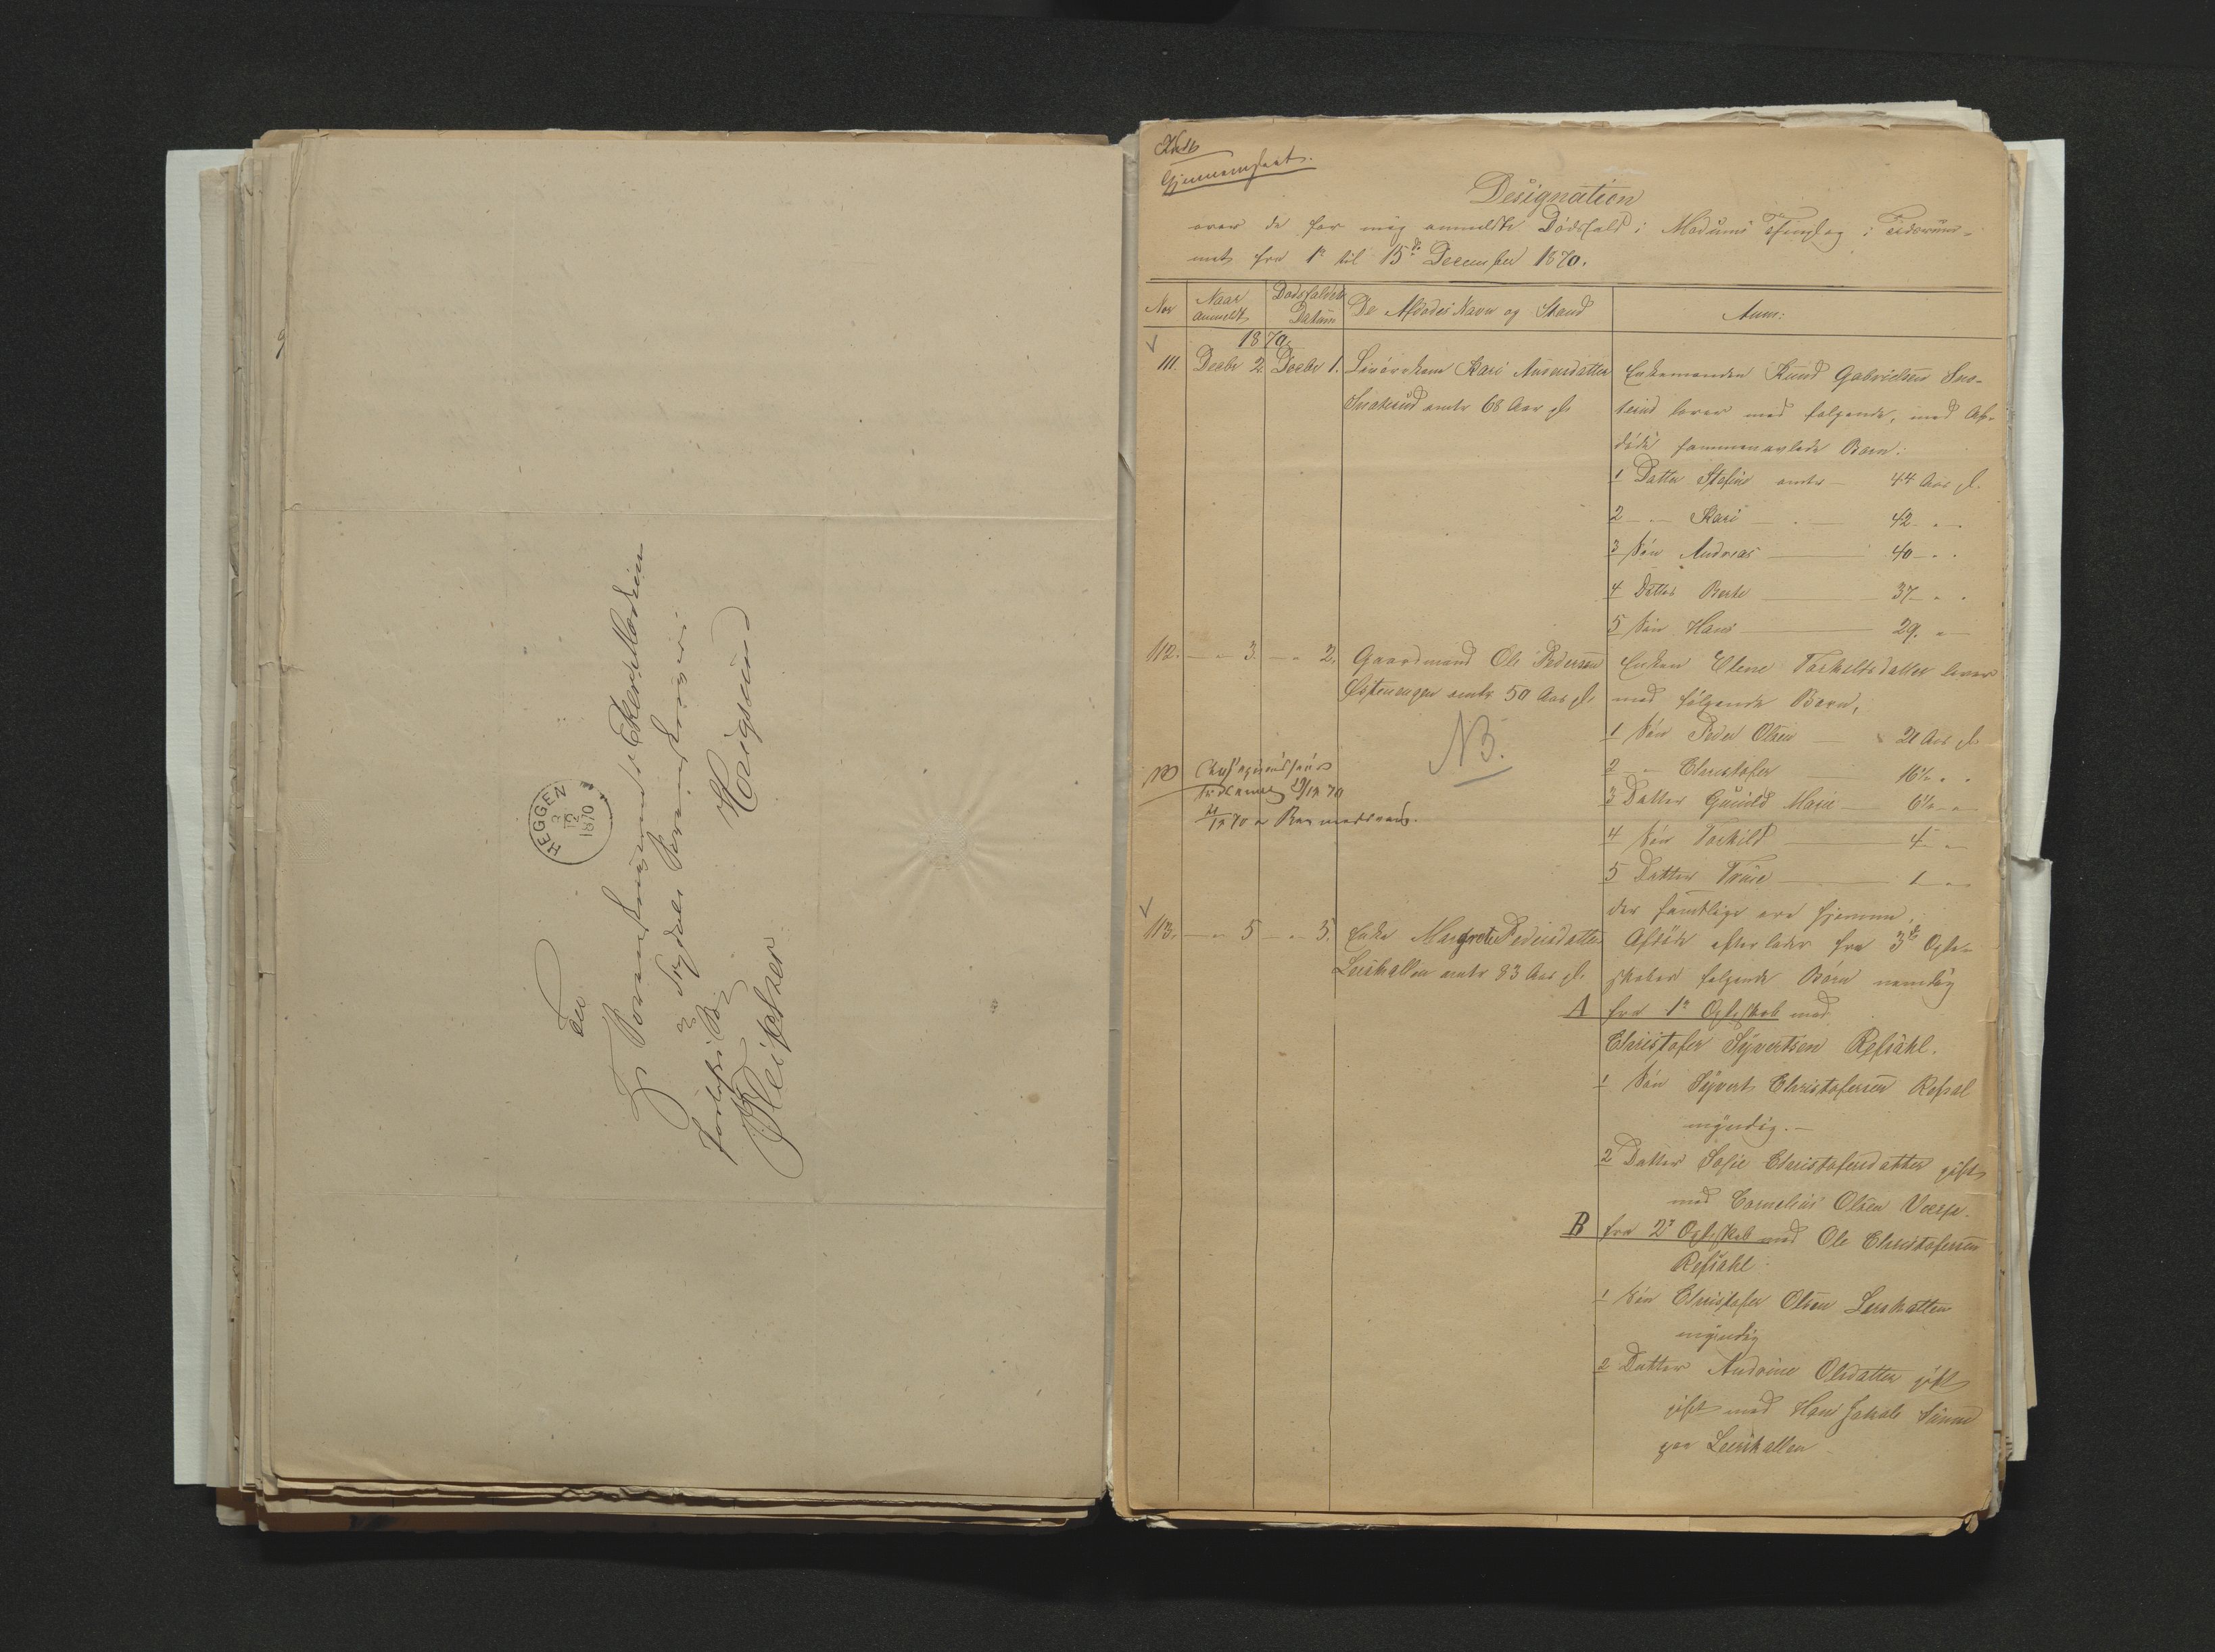 Til
Sorenskriveren i Eker, Modum
og Sigdals Sorenskriveri
Houigsund
HEGGEN
2
12
1870
Gjennemseet.
Designation
over de for mig anmeldte Dödsfald i Modums Thinglag i Tidsrum-
met fra 1ste til 15de December 1870.
Nor
Naar anmeldt
Dodsfaldets Datum
De Afdödes Navn og Stand
Anm:
1870.
111. Decbr 2. Decbr 1. Kari
Snoterud omtr 68 Aar gl.
Enkemanden Knud Gabrielsen Sno-
terud lever med følgende, med Af-
døde sammenavlede Børn:
1 Datter omtr 44 Aar gl.
2 Kari 42
3 Sön Andreas 40
4 Datter Berte 37
5 Sön Hans 29.
112. 3. 2. Gaardmand Ole Pedersen
omtr 50 Aar gl.
Enken Elene Torkildsdatter lever
med følgende Børn,
1 Sön Peder Olsen 21 Aar gl.
2 Christofer 16½
3 Datter Gunild Marie 6½
4 Sön Torkild 4
5 Datter 1
der samtlige ere hjemme.
NB.
NB
19/12 70
21/12 70
113. 5 5. Enke Margrete Pedersdatter
Leershallen omtr 83 Aar gl.
Afdøde efterlader fra 3de Ægte-
skaber følgende Børn nemlig
A fra 1ste Ægteskab med
Christofer Syvertsen Refsahl.
1 Sön Syvert Christofersen Refsal
myndig.
2 Datter Sofie Christofersdatter gift
med Cornelius Olsen
B fra 2det Ægteskab med Ole Christofersen
Refsahl
1 Sön Christofer Olsen Leershallen
myndig
2 Datter Andrine Olsdatter gift
gift med Hans Jakob
paa Leershallen